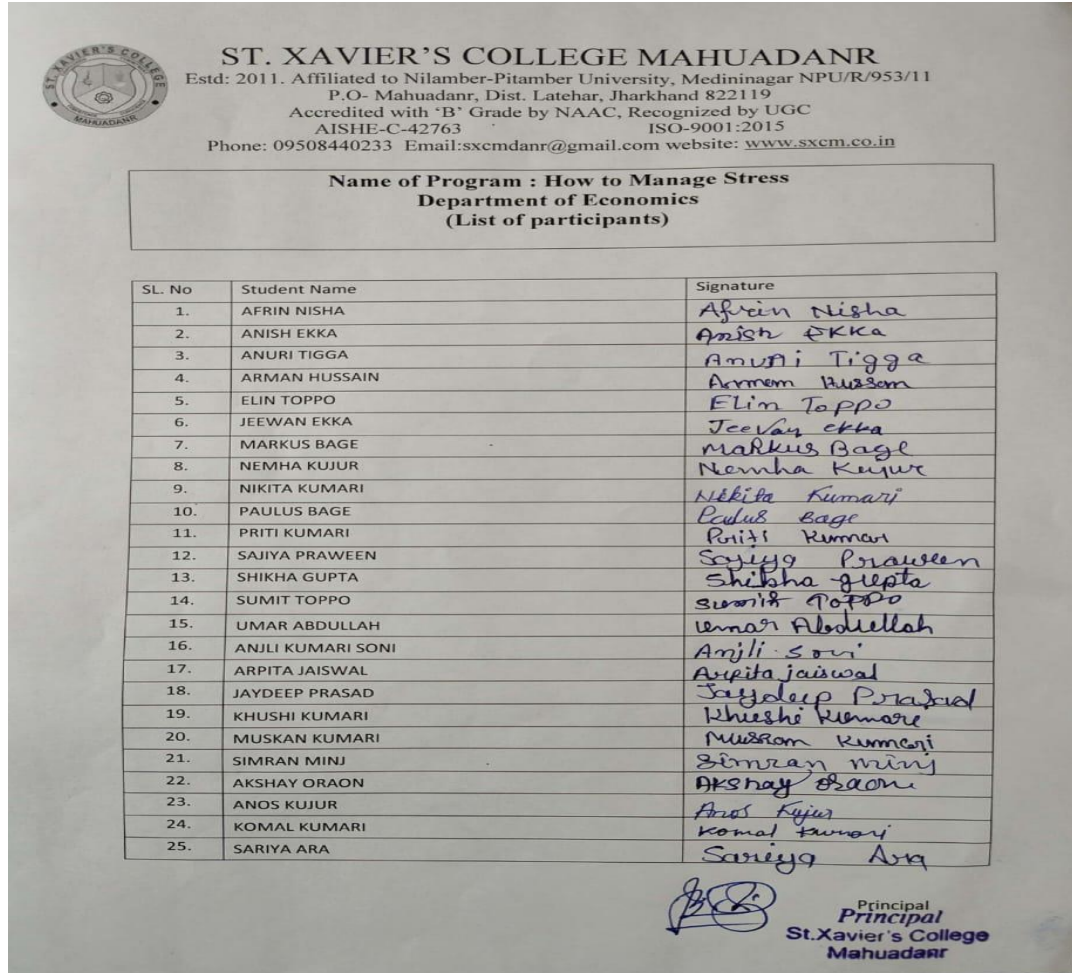 ST. XAVIER'S COLLEGE
MAHUADANR
ST. XAVIER'S COLLEGE MAHUADANR
Estd: 2011. Affiliated to Nilamber-Pitamber University, Medininagar NPU/R/953/11
P.O- Mahuadanr, Dist. Latehar, Jharkhand 822119
Accredited with 'B' Grade by NAAC, Recognized by UGC
AISHE-C-42763 ISO-9001:2015
Phone: 09508440233 Email:sxcmdanr@gmail.com website: www.sxcm.co.in
Name of Program : How to Manage Stress
Department of Economics
(List of participants)
SL. No Student Name Signature
1. AFRIN NISHA Afrin Nisha
2. ANISH EKKA Anish EKKa
3. ANURI TIGGA Anuri Tigga
4. ARMAN HUSSAIN Armam Hussam
5. ELIN TOPPO ELin Toppo
6. JEEWAN EKKA Jeevan ekka
7. MARKUS BAGE MaRkus Bage
8. NEMHA KUJUR Nemha Kujur
9. NIKITA KUMARI Nikita Kumari
10. PAULUS BAGE Paulus Bage
11. PRITI KUMARI Priti Kumari
12. SAJIYA PRAWEEN Sajiya Praween
13. SHIKHA GUPTA Shikha gupta
14. SUMIT TOPPO Sumit TOPPO
15. UMAR ABDULLAH Umar Abdullah
16. ANJLI KUMARI SONI Anjli Soni
17. ARPITA JAISWAL Arpita jaiswal
18. JAYDEEP PRASAD Jaydeep Prasad
19. KHUSHI KUMARI Khushi Kumari
20. MUSKAN KUMARI Muskan Kumari
21. SIMRAN MINJ Simran minj
22. AKSHAY ORAON AKshay Oraon
23. ANOS KUJUR Anos Kujur
24. KOMAL KUMARI Komal Kumari
25. SARIYA ARA Sariya Ara
Principal
Principal
St.Xavier's College
Mahuadanr